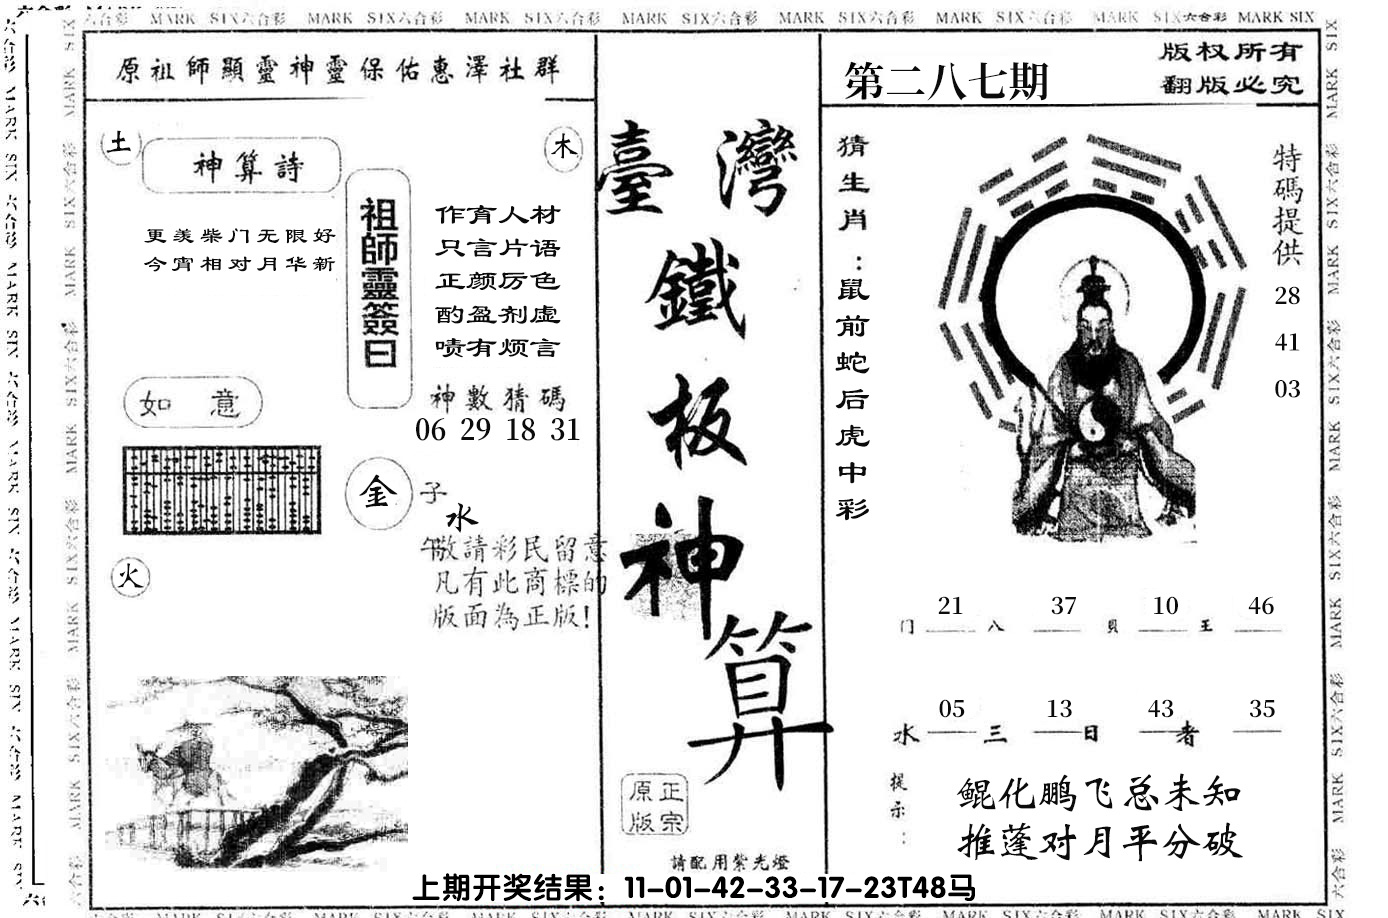 六合彩 MARK SIX六合彩 MARK SIX六合彩 MARK SIX六合彩 MARK SIX六合彩 MARK SIX六合彩 MARK SIX六合彩 MARK SIX六合彩 MARK SIX
原祖師顯靈神靈保佑惠澤社群
土
神算詩
木
更羡柴门无限好
今宵相对月华新
祖師靈簽曰
作育人材
只言片语
正颜厉色
酌盈剂虚
啧有烦言
神數猜碼
06 29 18 31
如 意
金
子
水
午
火
敬請彩民留意
凡有此商標的
版面為正版!
臺灣
鐵
板
神
算
正宗
原版
請配用紫光燈
第二八七期
版权所有
翻版必究
猜生肖:鼠前蛇后虎中彩
特碼提供
28
41
03
21 37 10 46
门 八 貝 王
05 13 43 35
水 三 日 者
提示:
鲲化鹏飞总未知
推蓬对月平分破
上期开奖结果：11-01-42-33-17-23T48马